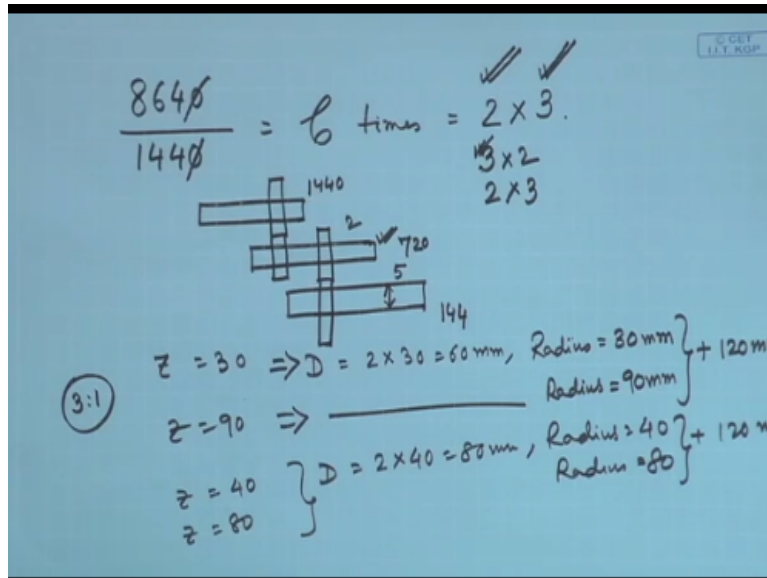 © CET
I.I.T. KGP
8640 / 1440 = 6 times = 2 × 3.
3 × 2
2 × 3
1440
2
720
5
144
3:1
Z = 30 => D = 2 × 30 = 60 mm, Radius = 30 mm } + 120 m
Z = 90 => Radius = 90 mm
Z = 40 } D = 2 × 40 = 80 mm, Radius = 40 } + 120 m
Z = 80 Radius = 80